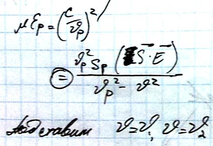 με_p = (c/ϑ_p)²
⊜ ϑ_p² S_p (S⃗·E⃗) / (ϑ_p² - ϑ²)
подставим ϑ=ϑ₁ ϑ=ϑ₂